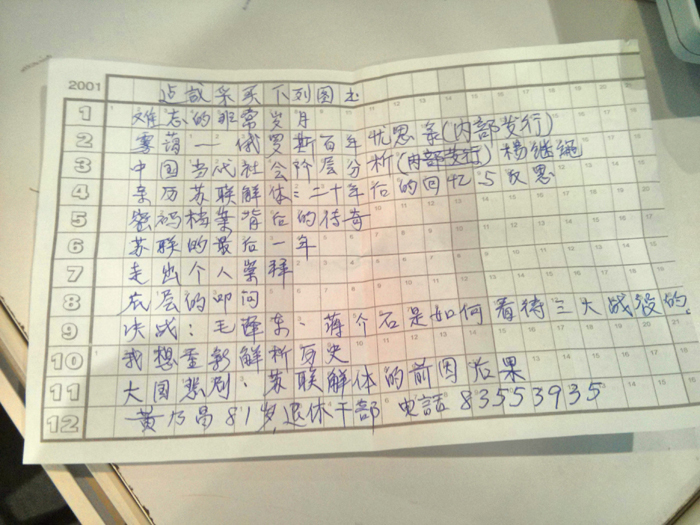 2001
建议采买下列图书
1 难忘的非常岁月
2 雾霭——俄罗斯百年忧思录(内部发行)
3 中国当代社会阶层分析(内部发行)杨继绳
4 亲历苏联解体:二十年后的回忆与反思
5 密码档案背后的传奇
6 苏联的最后一年
7 走出个人崇拜
8 底层的叩问
9 决战:毛泽东、蒋介石是如何看待三大战役的.
10 我想重新解析历史
11 大国悲剧:苏联解体的前因后果
12 黄乃昌81岁退休干部 电話83553935